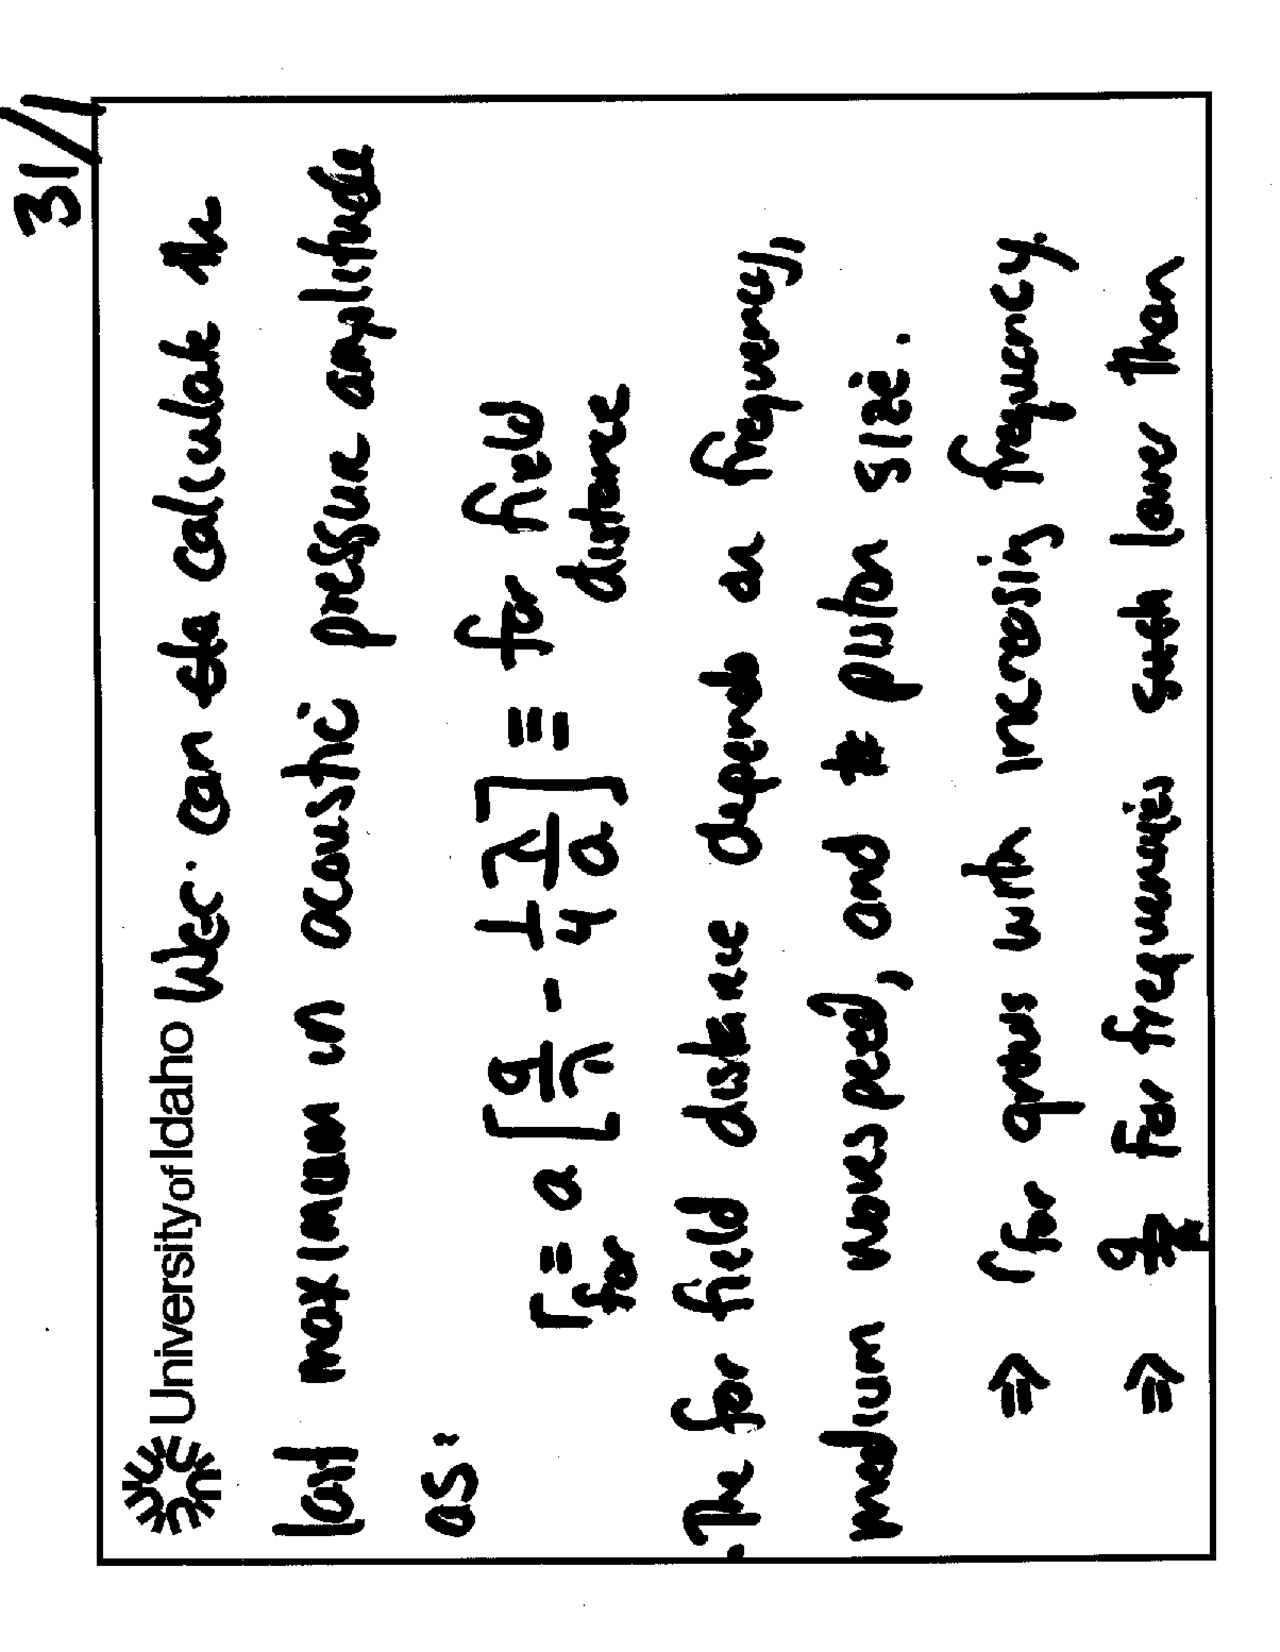 31/
University of Idaho We can calculate the
last maximum in acoustic pressure amplitude
as:
r_far = a [a/λ - 1/4 λ/a] ≡ far field
distance
. The far field distance depends on frequency,
medium wavespeed, and piston size.
⇒ r_far grows with increasing frequency.
⇒ For frequencies lower than